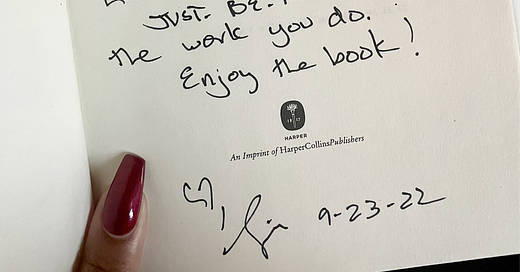 JUST. BE.
the work you do.
Enjoy the book!
18 17
HARPER
An Imprint of HarperCollinsPublishers
9-23-22